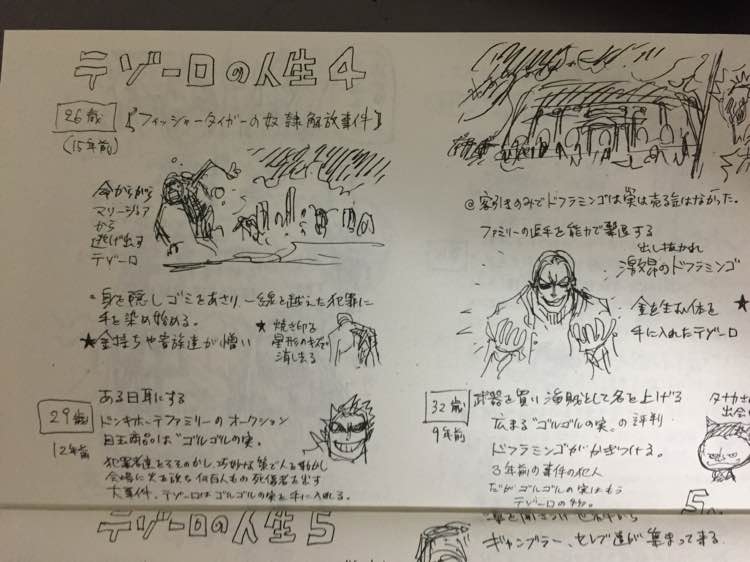 テゾーロの人生4
26歳
(15年前)
『フィッシャータイガーの奴隷解放事件』
命からがら
マリージョア
から
逃げ出す
テゾーロ
身を隠しゴミをあさり、一線を越えた犯罪に
手を染め始める。
★金持ちや貴族達が憎い
★焼き印を
星形のキズで
消し去る
29歳
12年前
ある日耳にする
ドンキホーテファミリーのオークション
目玉商品は"ゴルゴルの実。
犯罪者達をそそのかし、巧妙な策で人を動かし
会場に火を放ち何百人もの死傷者を出す
大事件。テゾーロはゴルゴルの実を手に入れる。
@客引きのみでドフラミンゴは実は売る気はなかった。
ファミリーの追手を能力で撃退する
出し抜かれ
激昂のドフラミンゴ
金を生む体を
手に入れたテゾーロ
★
32歳
9年前
武器を買い海賊として名を上げる
広まる"ゴルゴルの実"の評判
ドフラミンゴがかぎつける。
3年前の事件の犯人
だがゴルゴルの実はもう
テゾーロの物。
タナカさん
出会
5へ
テゾーロの人生5
ギャンブラー、セレブ達が集まって来る